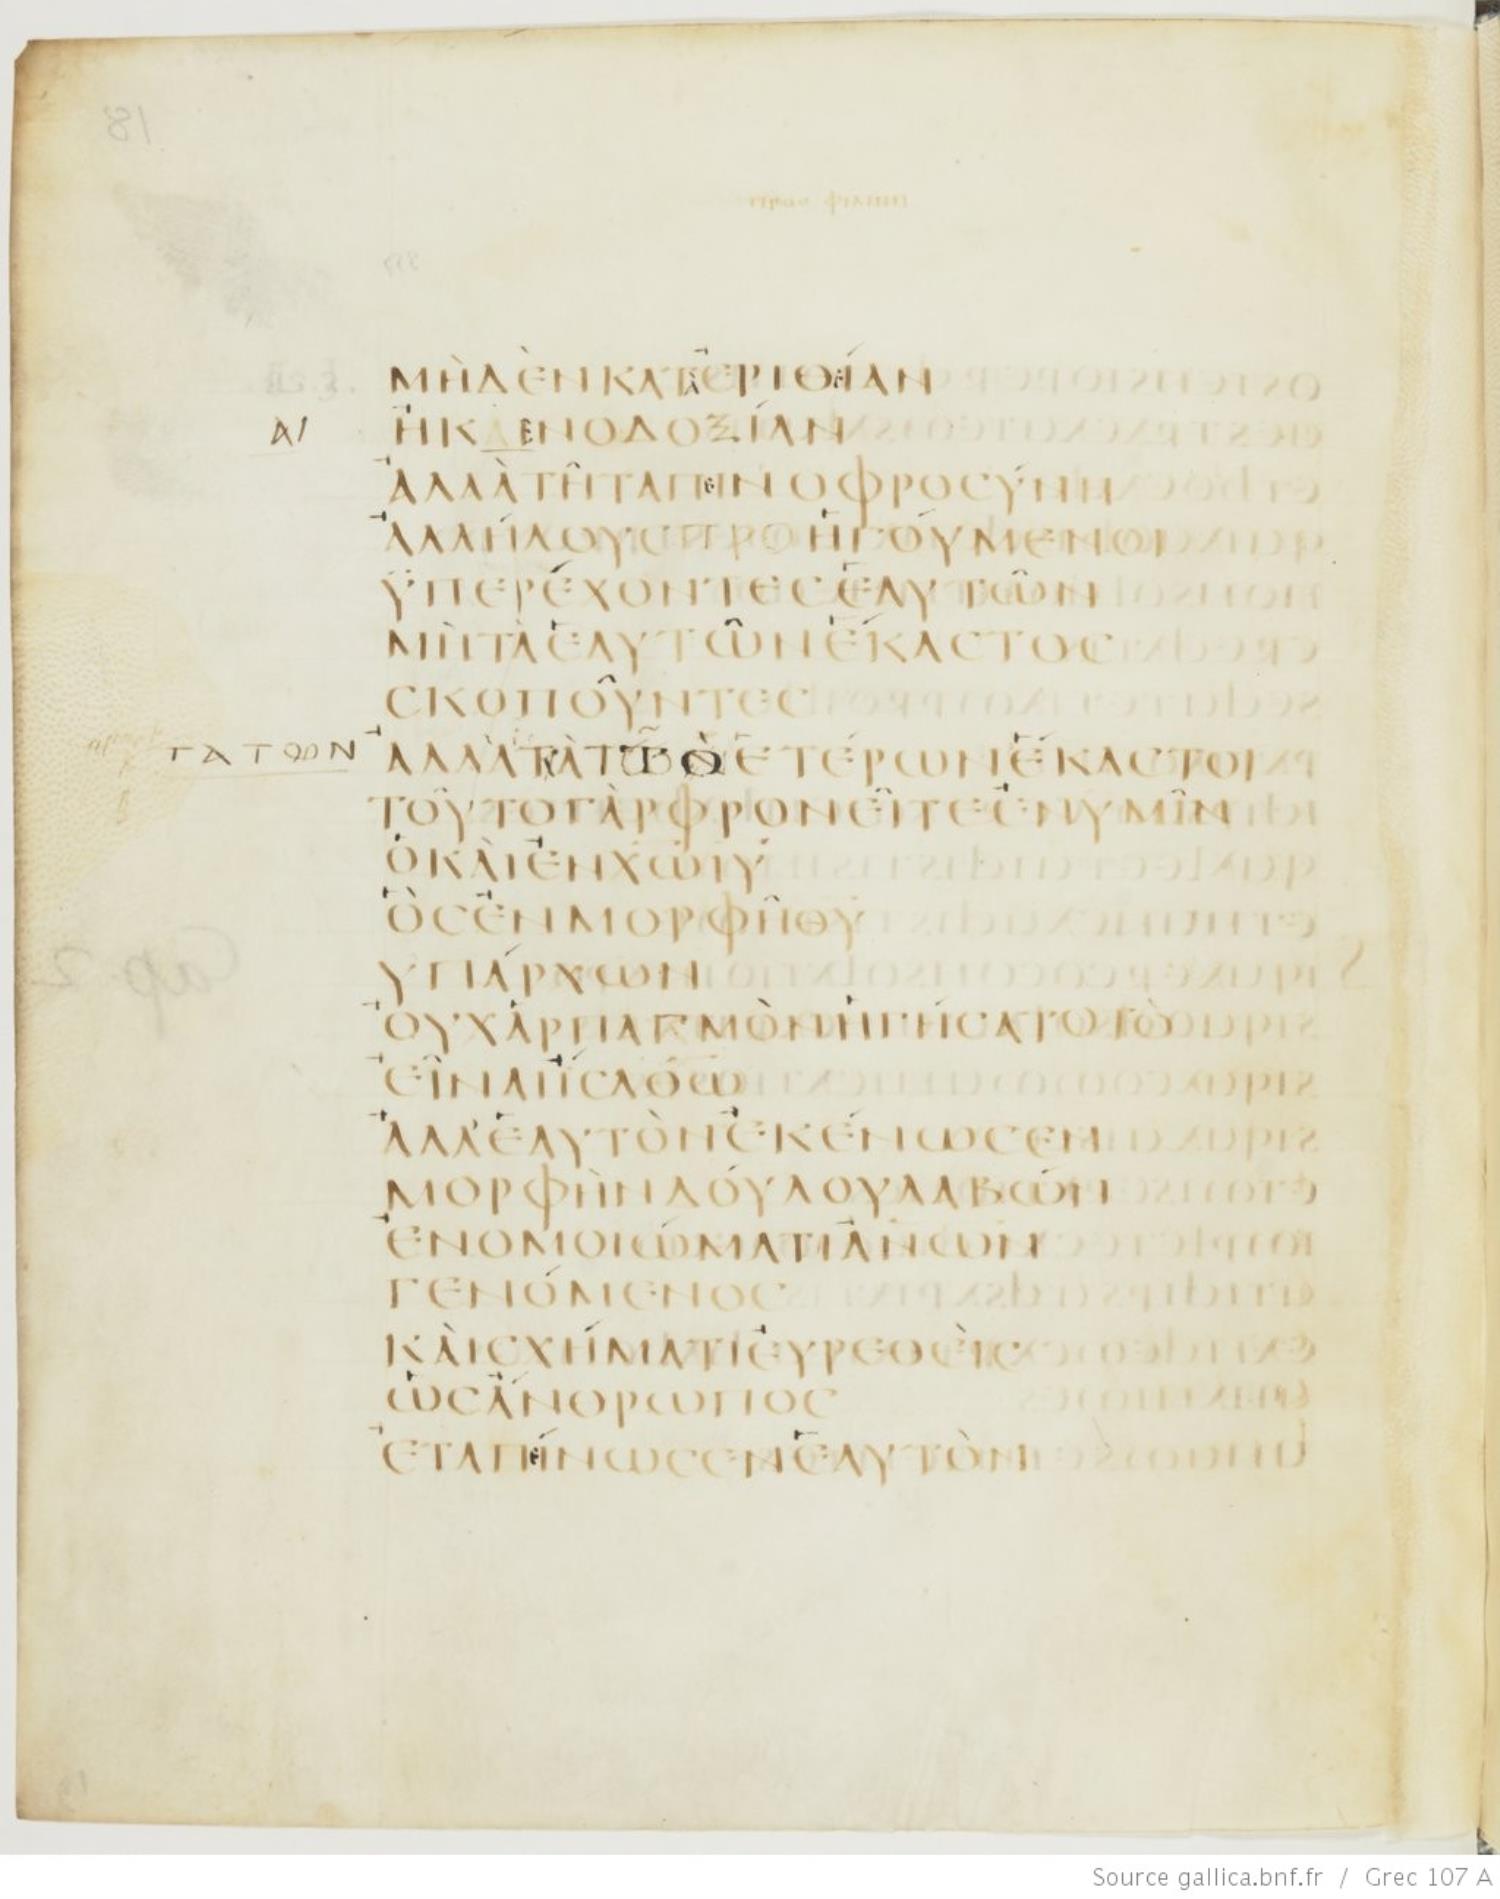 προσ φιλιππ
ΜΗΔΕΝΚΑΤΕΡΙΘΕΙΑΝ
ΑΙ
ΗΚΕΝΟΔΟΞΙΑΝ
ΑΛΛΑΤΗΤΑΠΕΙΝΟΦΡΟΣΥΝΗ
ΑΛΛΗΛΟΥΣΠΡΟΗΓΟΥΜΕΝΟΙ
ΫΠΕΡΕΧΟΝΤΕΣΕΑΥΤΩΝ
ΜΗΤΑΕΑΥΤΩΝΕΚΑΣΤΟΣ
ΣΚΟΠΟΥΝΤΕΣ
ΤΑΤΩΝ
ΑΛΛΑ ΕΤΕΡΩΝΕΚΑΣΤΟΙ
ΤΟΥΤΟΓΑΡΦΡΟΝΕΙΤΕΕΝΥΜΙΝ
ΟΚΑΙΕΝΧΩΙΥ
ΟΣΕΝΜΟΡΦΗΘΥ
ΥΠΑΡΧΩΝ
ΟΥΧΑΡΠΑΓΜΟΝΗΓΗΣΑΤΟΤΟ
ΕΙΝΑΙΙΣΑΘΩ
ΑΛΛΕΑΥΤΟΝΕΚΕΝΩΣΕΝ
ΜΟΡΦΗΝΔΟΥΛΟΥΛΑΒΩΝ
ΕΝΟΜΟΙΩΜΑΤΙΑΝΩΝ
ΓΕΝΟΜΕΝΟΣ
ΚΑΙΣΧΗΜΑΤΙΕΥΡΕΘΕΙΣ
ΩΣΑΝΘΡΩΠΟΣ
ΕΤΑΠΕΙΝΩΣΕΝΕΑΥΤΟΝ
Source gallica.bnf.fr / Grec 107 A